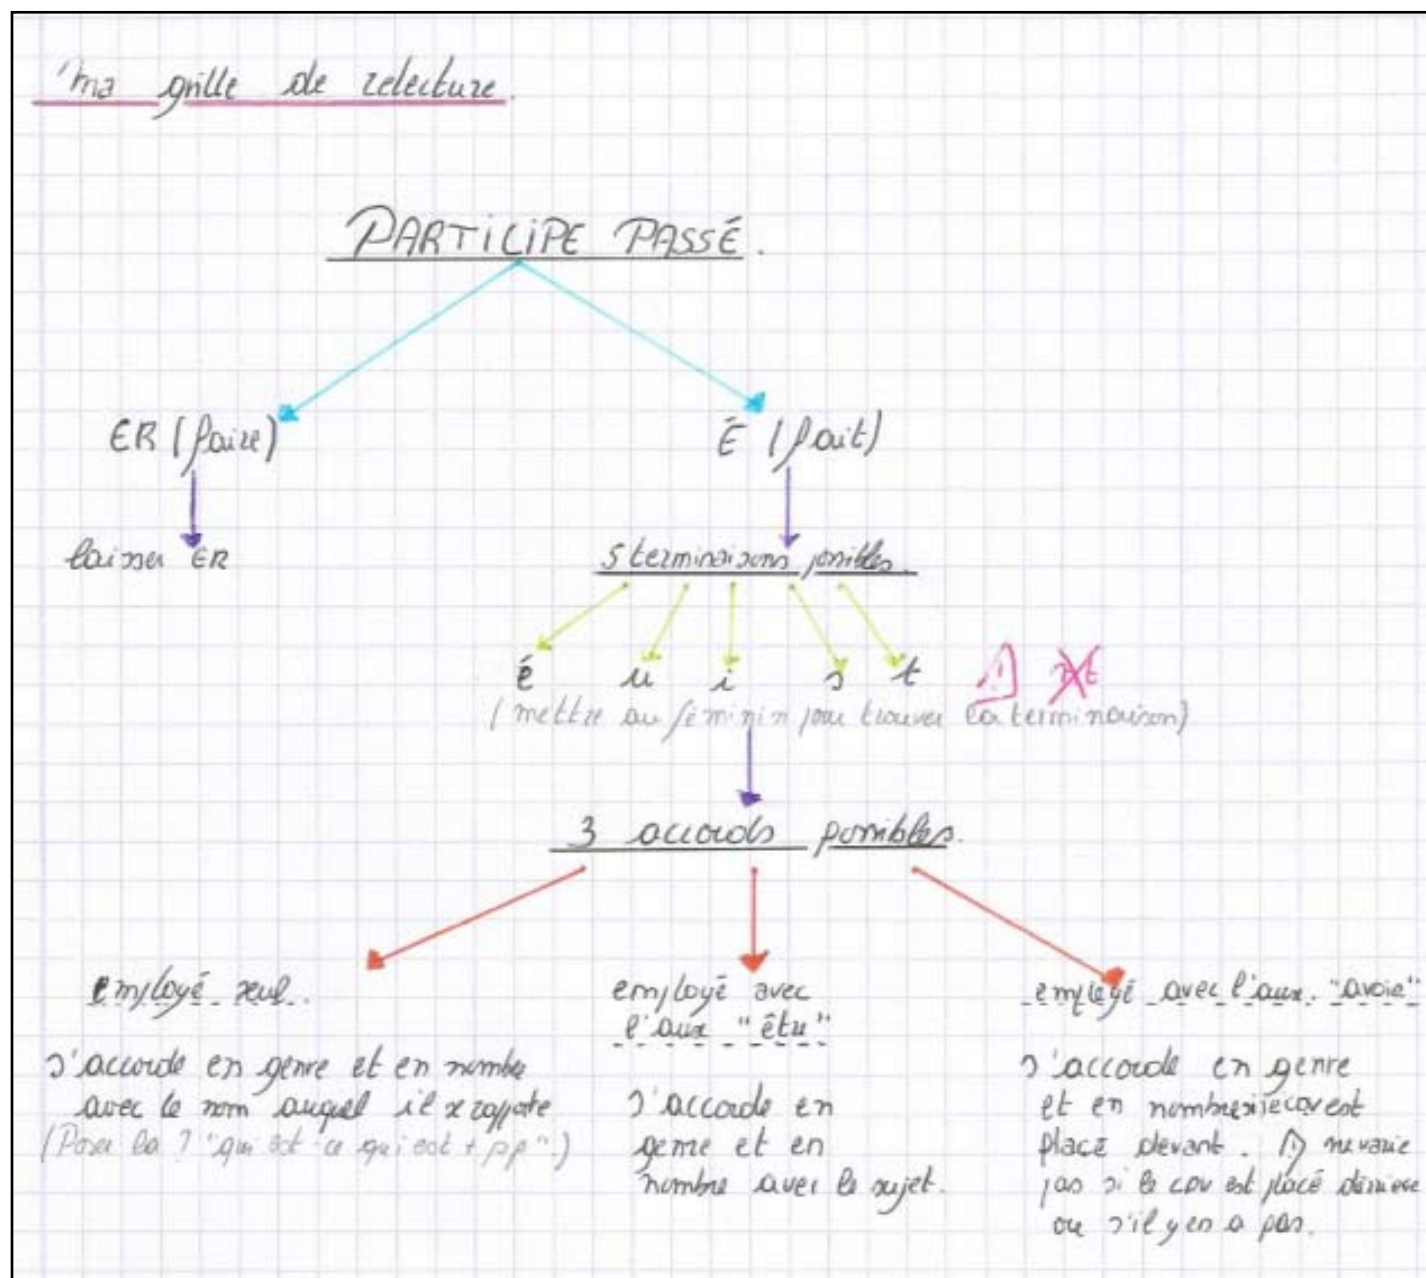 Ma grille de relecture.
PARTICIPE PASSÉ.
ER (faire)
É (fait)
laisser ER
5 terminaisons possibles.
é u i s t
(mettre au féminin pour trouver la terminaison)
3 accords possibles.
employé seul.
s'accorde en genre et en nombre
avec le nom auquel il se rapporte
(Poser la ? "qui est-ce qui est + pp".)
employé avec
l'aux "être"
s'accorde en
genre et en
nombre avec le sujet.
employé avec l'aux. "avoir"
s'accorde en genre
et en nombre si le COD est
placé devant. ne varie
pas si le COD est placé derrière
ou s'il y en a pas.